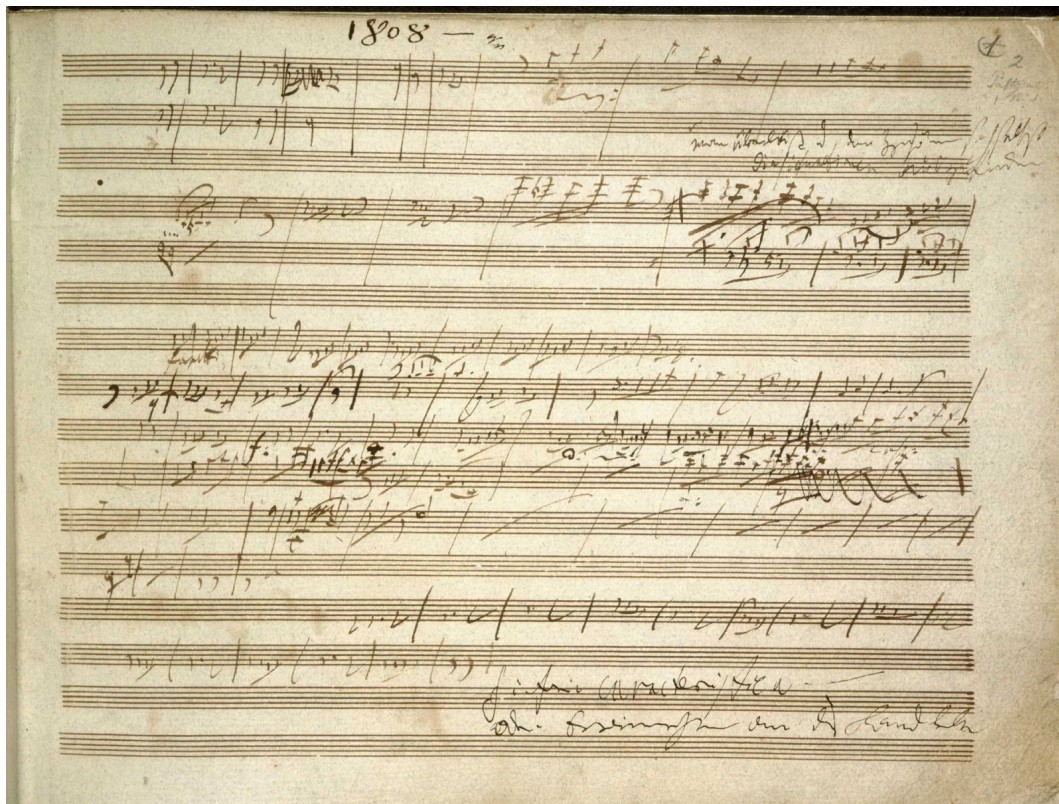 1808 —
2
man überläßt es dem Zuhörer sich selbst
die Situationen auszufinden
Sinfonia caracteristica —
oder Erinnerung an das Landleben